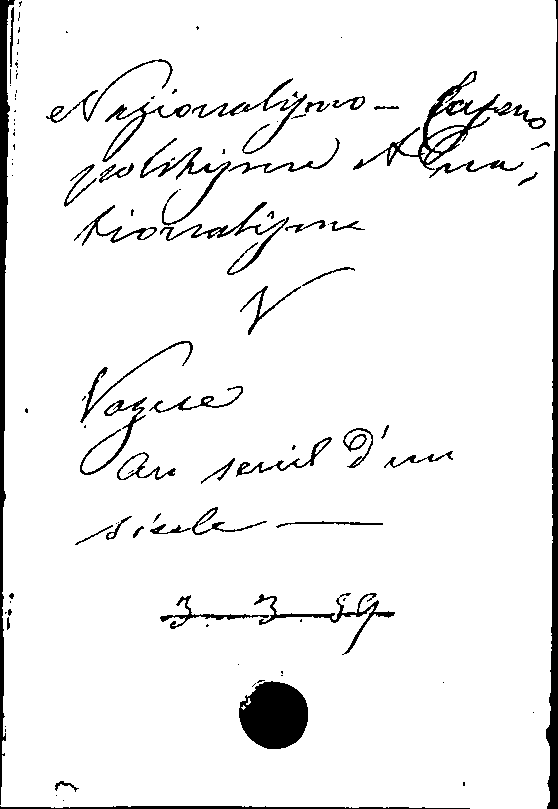 Nazionalismo – Cosmo-
politisme et Na-
tionalisme
V
Vogüe
Au seuil d'un
siècle —
3 3 59